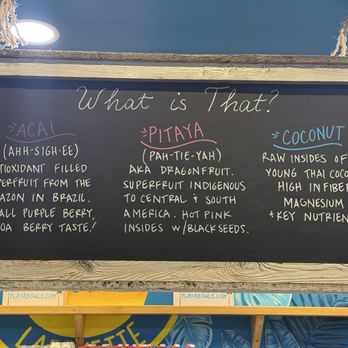 What is That?
ACAI
(AHH-SIGH-EE)
FILLED
FROM THE
IN BRAZIL.
PURPLE BERRY,
BERRY TASTE!
PITAYA
(PAH-TIE-YAH)
AKA DRAGONFRUIT.
SUPERFRUIT INDIGENOUS
TO CENTRAL & SOUTH
AMERICA. HOT PINK
INSIDES W/BLACK SEEDS.
COCONUT
RAW INSIDES OF
YOUNG THAI
HIGH IN FIBER
MAGNESIUM
& KEY
PLAYABOWLS.COM
PLAYABOWLS.COM